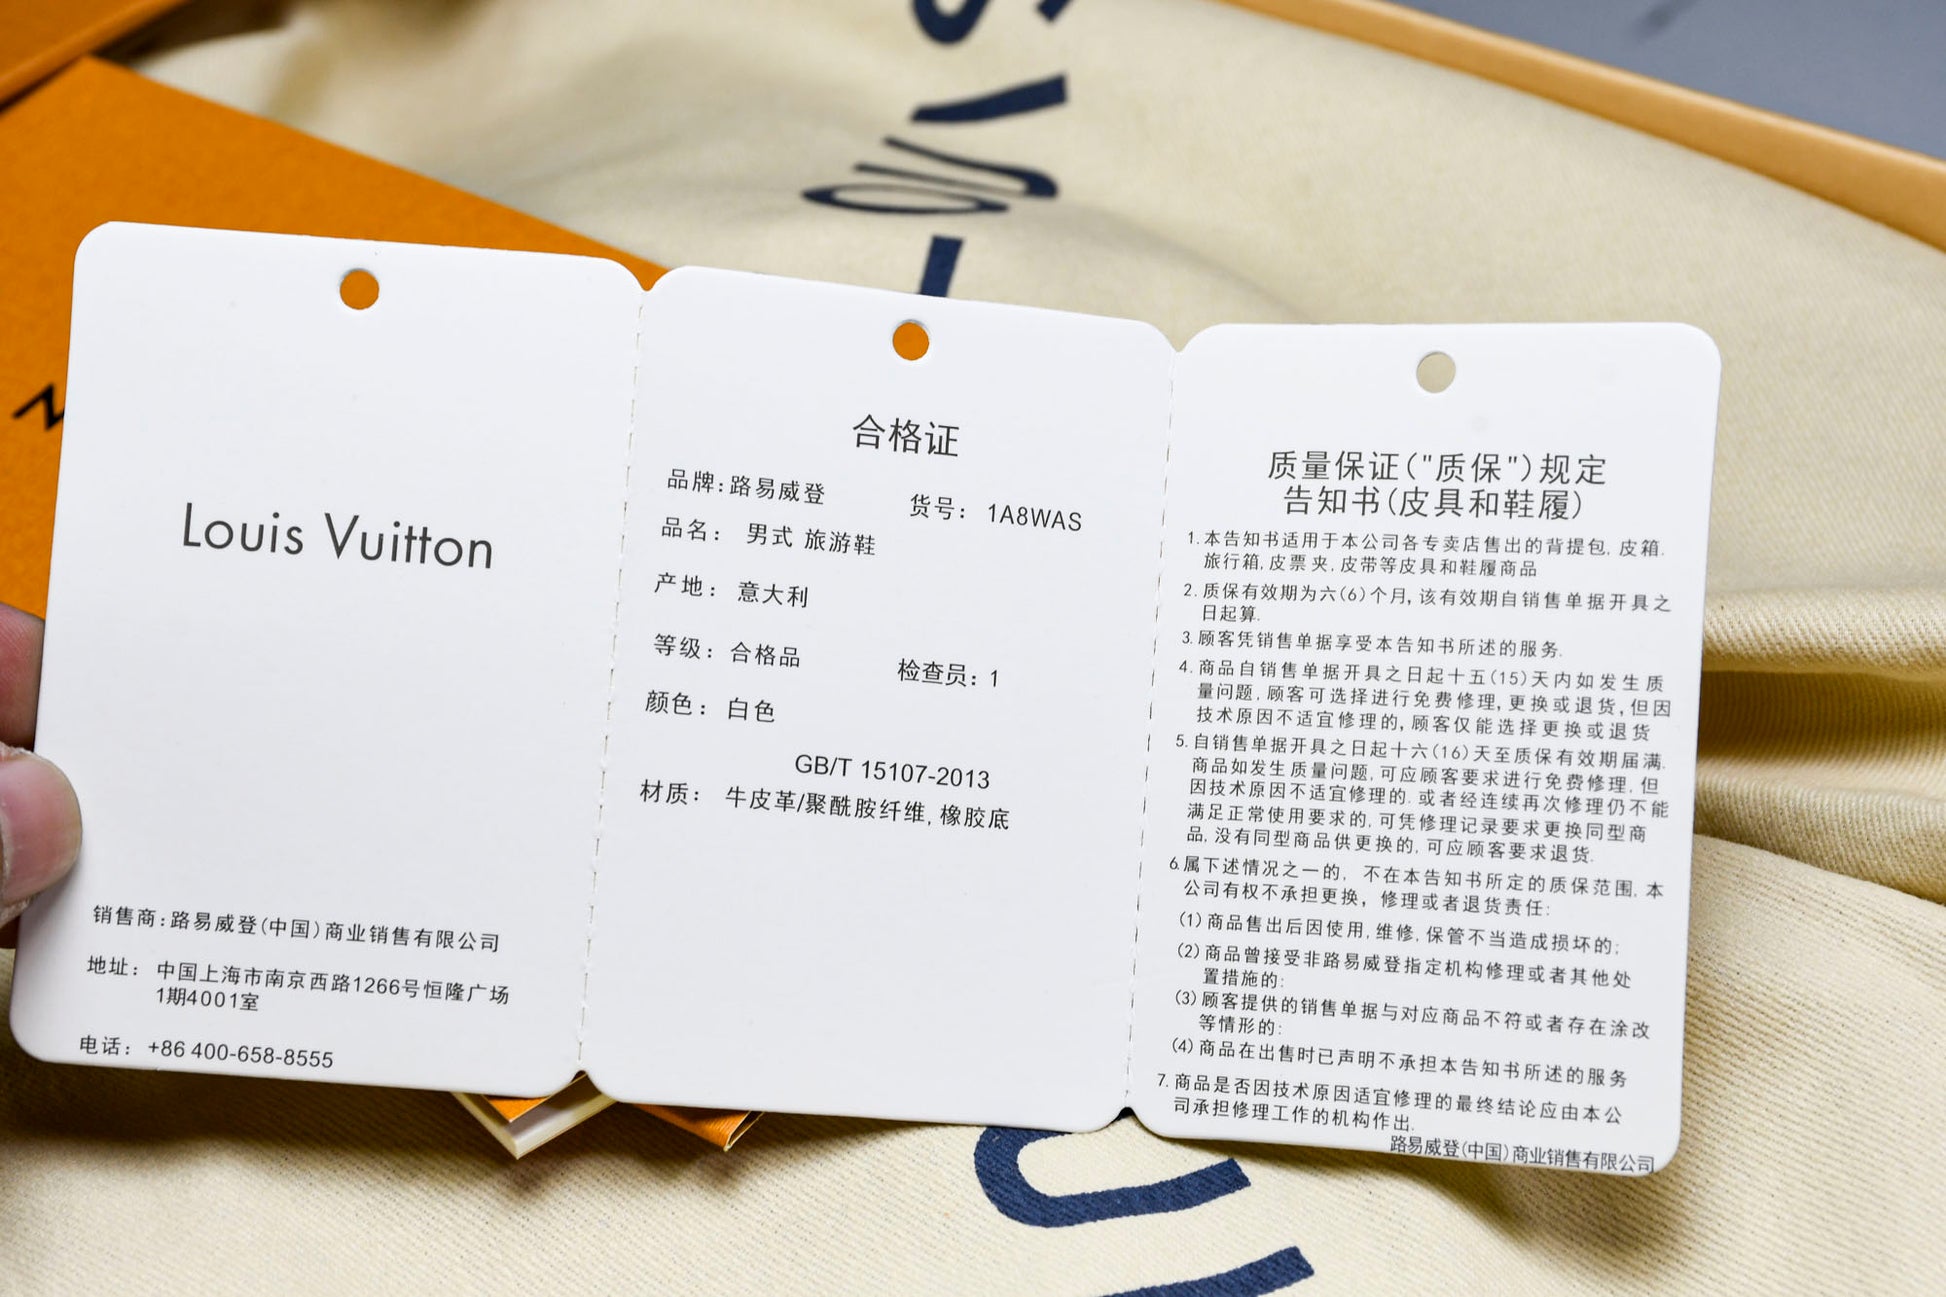 Louis Vuitton
销售商:路易威登(中国)商业销售有限公司
地址： 中国上海市南京西路1266号恒隆广场
1期4001室
电话： +86 400-658-8555
合格证
品牌:路易威登 货号： 1A8WAS
品名： 男式 旅游鞋
产地： 意大利
等级：合格品 检查员：1
颜色： 白色
GB/T 15107-2013
材质： 牛皮革/聚酰胺纤维, 橡胶底
质量保证("质保")规定
告知书(皮具和鞋履)
1.本告知书适用于本公司各专卖店售出的背提包, 皮箱.
旅行箱, 皮票夹, 皮带等皮具和鞋履商品
2.质保有效期为六(6)个月, 该有效期自销售单据开具之
日起算.
3.顾客凭销售单据享受本告知书所述的服务.
4.商品自销售单据开具之日起十五(15)天内如发生质
量问题, 顾客可选择进行免费修理, 更换或退货, 但因
技术原因不适宜修理的, 顾客仅能选择更换或退货
5.自销售单据开具之日起十六(16)天至质保有效期届满.
商品如发生质量问题, 可应顾客要求进行免费修理. 但
因技术原因不适宜修理的. 或者经连续再次修理仍不能
满足正常使用要求的, 可凭修理记录要求更换同型商
品, 没有同型商品供更换的, 可应顾客要求退货.
6.属下述情况之一的， 不在本告知书所定的质保范围, 本
公司有权不承担更换，修理或者退货责任:
(1)商品售出后因使用, 维修, 保管不当造成损坏的;
(2)商品曾接受非路易威登指定机构修理或者其他处
置措施的:
(3)顾客提供的销售单据与对应商品不符或者存在涂改
等情形的:
(4)商品在出售时已声明不承担本告知书所述的服务
7.商品是否因技术原因适宜修理的最终结论应由本公
司承担修理工作的机构作出.
路易威登(中国)商业销售有限公司